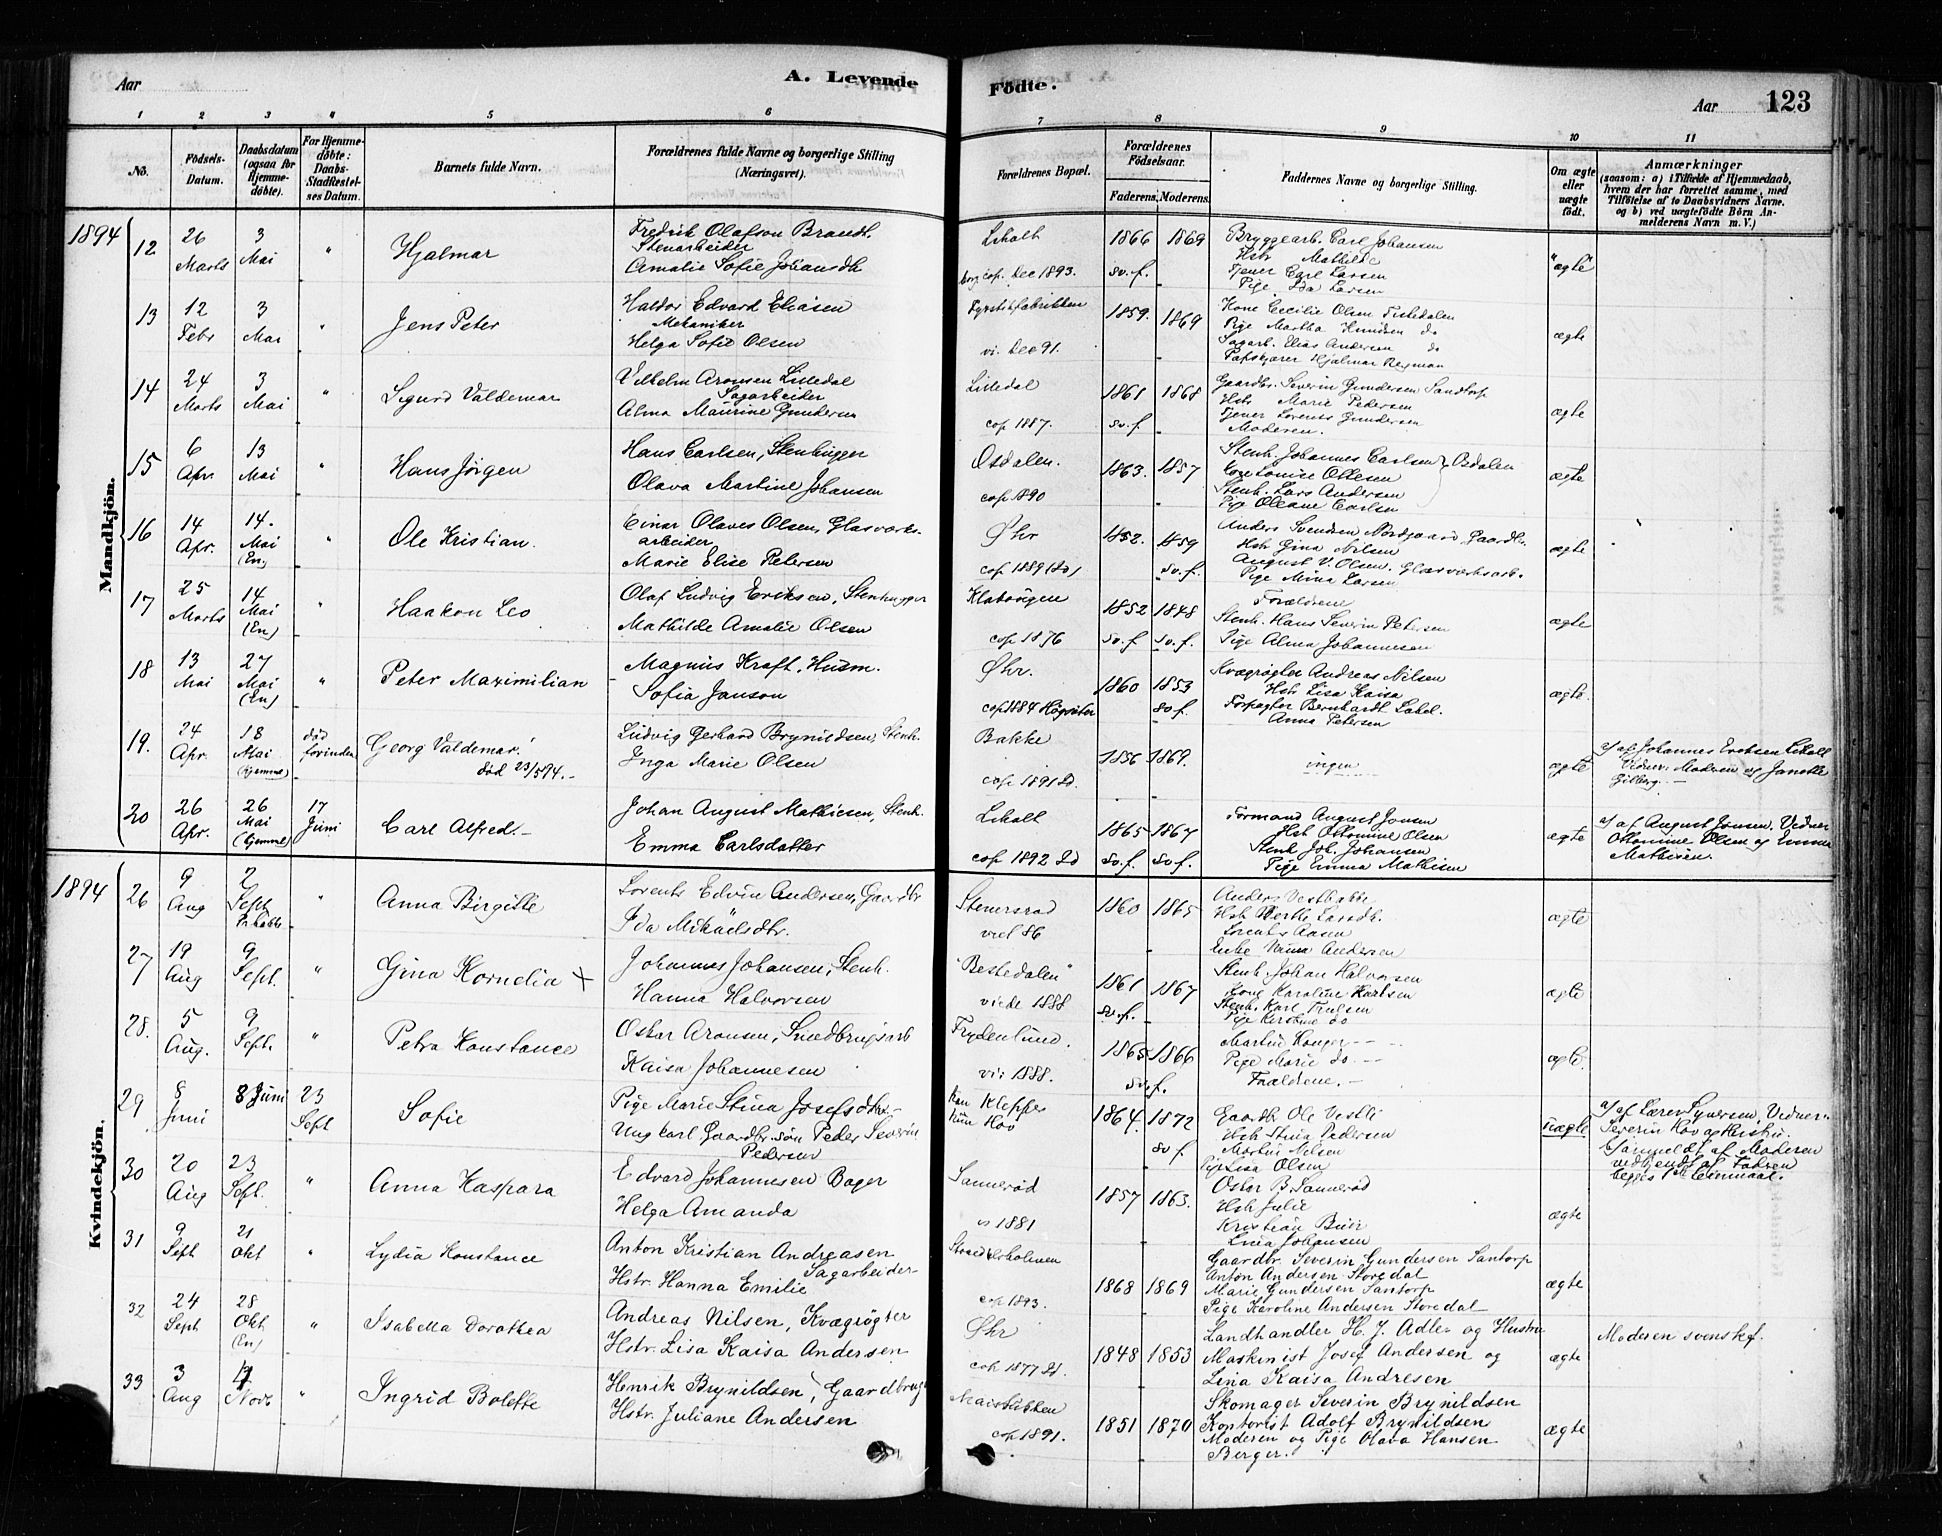 Aar
A. Levende
Födte.
Aar
123
1 2 3 " 5 6 7 8 9 10 11
No.
Födsels-Datum.
Daabsdatum (ogsaa for Hjemme-döbte).
For Hjemme-döbte: Daabs-Stadfestel-ses Datum.
Barnets fulde Navn.
Forældrenes fulde Navne og borgerlige Stilling (Næringsvei).
Forældrenes Bopæl.
Forældrenes Födselsaar.
Faderens. Moderens.
Faddernes Navne og borgerlige Stilling.
Om ægte eller uægte födt.
Anmærkninger
(saasom: a) i Tilfælde af Hjemmedaab, hvem der har forrettet samme, med Tilföielse af to Daabsvidners Navne. og b) ved uægtefödte Börn An-melderens Navn m. V.)
Mandkjön.
1894
12 26 Marts 3 Mai " Hjalmar
Fredrik Olafson Brandt.
Stenarbeider
Amalie Sofie Johansdtr
Liholt
cop. Dec 1893.
1866 1869
sv.f.
Bryggearb. Carl Johansen
Hstr Mathilde
Tjener Carl Larsen
Pige Ida Larsen
"ægte"
13 12 Febr 3 Mai " Jens Peter
Haldor Edvard Eliasen
Mekaniker
Helga Sofie Olsen
vi. Dec 91.
1859. 1869
Kone Cecilie Olsen Tistedalen
Pige Martha Knudsen do
Sagarb. Elias Andersen do
Hjalmar Bergman
ægte
14 24 Marts 3 Mai " Sigurd Valdemar
Vilhelm Aronsen Lilledal
Sagarbeider
Alma Maurine Gundersen
Lilledal
cop 1887.
1861 1868
sv.f
Gaardbr. Severin Gundersen Sandtorp
Hstr Marie Pedersen
Tjener Lorents Gundersen
Moderen.
ægte
15 6 Apr. 13 Mai " Hans Jörgen
Hans Carlsen, Stenhugger
Olava Martine Johansen
Osdalen.
cop 1890
1863. 1857
Stenh. Johannes Carlsen } Osdalen
Louise Ottesen
Stenh. Lars Andersen
Pige Oleane Carlsen
ægte
16 14 Apr. 14. Mai (En) " Ole Kristian.
Einar Olaves Olsen, Glasværks-
arbeider
Marie Elise Petersen
Øhr
cop 1889 (Id)
1852. 1859
sv.f.
Anders Svendsen Nordgaard Gaardbr.
Hstr Gina Nilsen
August V. Olsen. Glasværksarb.
Pige Mina Larsen
ægte
17 25 Marts 14 Mai (En) " Haakon Leo
Olaf Ludvig Eriksen, Stenhugger
Mathilde Amalie Olsen
cop 1876
1852 1848
sv.f sv.f.
Forældrene
Stenh. Hans Severin Petersen
Pige Alma Johannesen
ægte
18 13 Mai 27 Mai (En) " Peter Maximilian
Magnus Kraft, Husm.
Sofia Janson
Øhr.
cop 1884
1860 1853
sv.f.
Kvægrögter Andreas Nilsen
Hstr Lisa Kaisa
Forpagter Bernhardt
Anna Petersen
ægte
19. 24 Apr. 18 Mai (Hjemme) død forinden Georg Valdemar.
død 23/5 94.
Ludvig Gerhard Brynildsen, Stenh.
Inga Marie Olsen
Bakke
cop. 1891 Id.
1856 1869.
ingen
ægte
a/ af Johannes Eriksen Liholt
Vidner. Modren og Janette
20 26 Apr. 26 Mai (Hjemme) 17 Juni Carl Alfred.
Johan August Mathiesen, Stenh.
Emma Carlsdatter
Liholt
cop 1892 Id
1865 1867
sv.f. sv.f.
Formand August Jonsen
Hstr Ottomine Olsen
Stenh Joh. Johansen
Pige Emma Mathisen
ægte
a/ af August Jonsen, Vidner
Ottomine Olsen og Emma
Mathisen.
Kvindekjön.
1894
26 9 Aug 2 Sept " Anna Birgitte
Lorents Edvin Andersen, Gaardbr
Ida Mikaelsdtr.
Stenersrød
viet 86
1860 1865
Anders Vestbakke
Lorents Aasen
Enke Andersen
ægte
27 19 Aug 9 Sept. " Gina Kornelia +
Johannes Johansen, Stenh.
Hanna Halvorsen
"Bestedalen"
viede 1888
1861 1867
sv.f.
Stenh. Johan Halvorsen
Kone Karoline Karlsen
Stenh. Karl Trulsen
Pige Kirstine do
ægte
28. 5 Aug. 9 Sept. " Petra Konstance
Oskar Aronsen, Snedbrugsarb
Kaisa Johannesen
Frydenlund.
vi: 1888.
1865 1866
sv.f.
Martin
Pige Marie do
Forældrene.
ægte.
29 8 Juni 8 Juni 23 Sept Sofie
Pige Marie Stina Josefsdtr
Ungkarl Gaardbr. søn Peder Severin
Pedersen
Han Kleppe
Hun Hov
1864. 1872
sv f.
Gaardbr Ole Vestli
Hstr Stina Pedersen
Martin Nilsen
Pige Lisa Olsen
uægte
a/ af Lærer Syversen, Vidner:
Severin Hov og Hustru.
b/ anmeldt af Moderen
vedkjendt af Fadren
Begges 1ste Leiermaal.
30 20 Aug 23 Sept. " Anna Kaspara
Edvard Johannesen Bager
Helga Amanda
Sannerød
vi 1881
1857 1863.
Oskar B. Sannerød
Hstr Julie
Kristian Buer
Lina Johansen
ægte
31 9 Sept 21 Okt " Lydia Konstance
Anton Kristian Andreasen
Sagarbeider
Hstr. Hanna Emilie
cop 1893.
1868 1869
Gaardbr. Severin Gundersen Santorp
Anton Andersen Storedal
Marie Gundersen Santorp
Pige Karoline Andersen Storedal
ægte
32 24 Sept 28 Okt. (En) " Isabella Dorothea
Andreas Nilsen, Kvægrögter
Hstr. Lisa Kaisa Andersen
Øhr
cop 1877 Id.
1848 1853
Landhandler H. J. Adler og Hustru
Maskinist Josef Andersen og
Lina Kaisa Andresen
ægte
Moderen svensk f.
33 3 Aug 4 Novb " Ingrid Bolette
Henrik Brynildsen, Gaardbrug
Hstr. Juliane Andersen
cop 1891.
1851 1870
Skomager Severin Brynildsen
Kontorist Adolf Brynildsen
Moderen og Pige Olava Hansen
Berger.
ægte